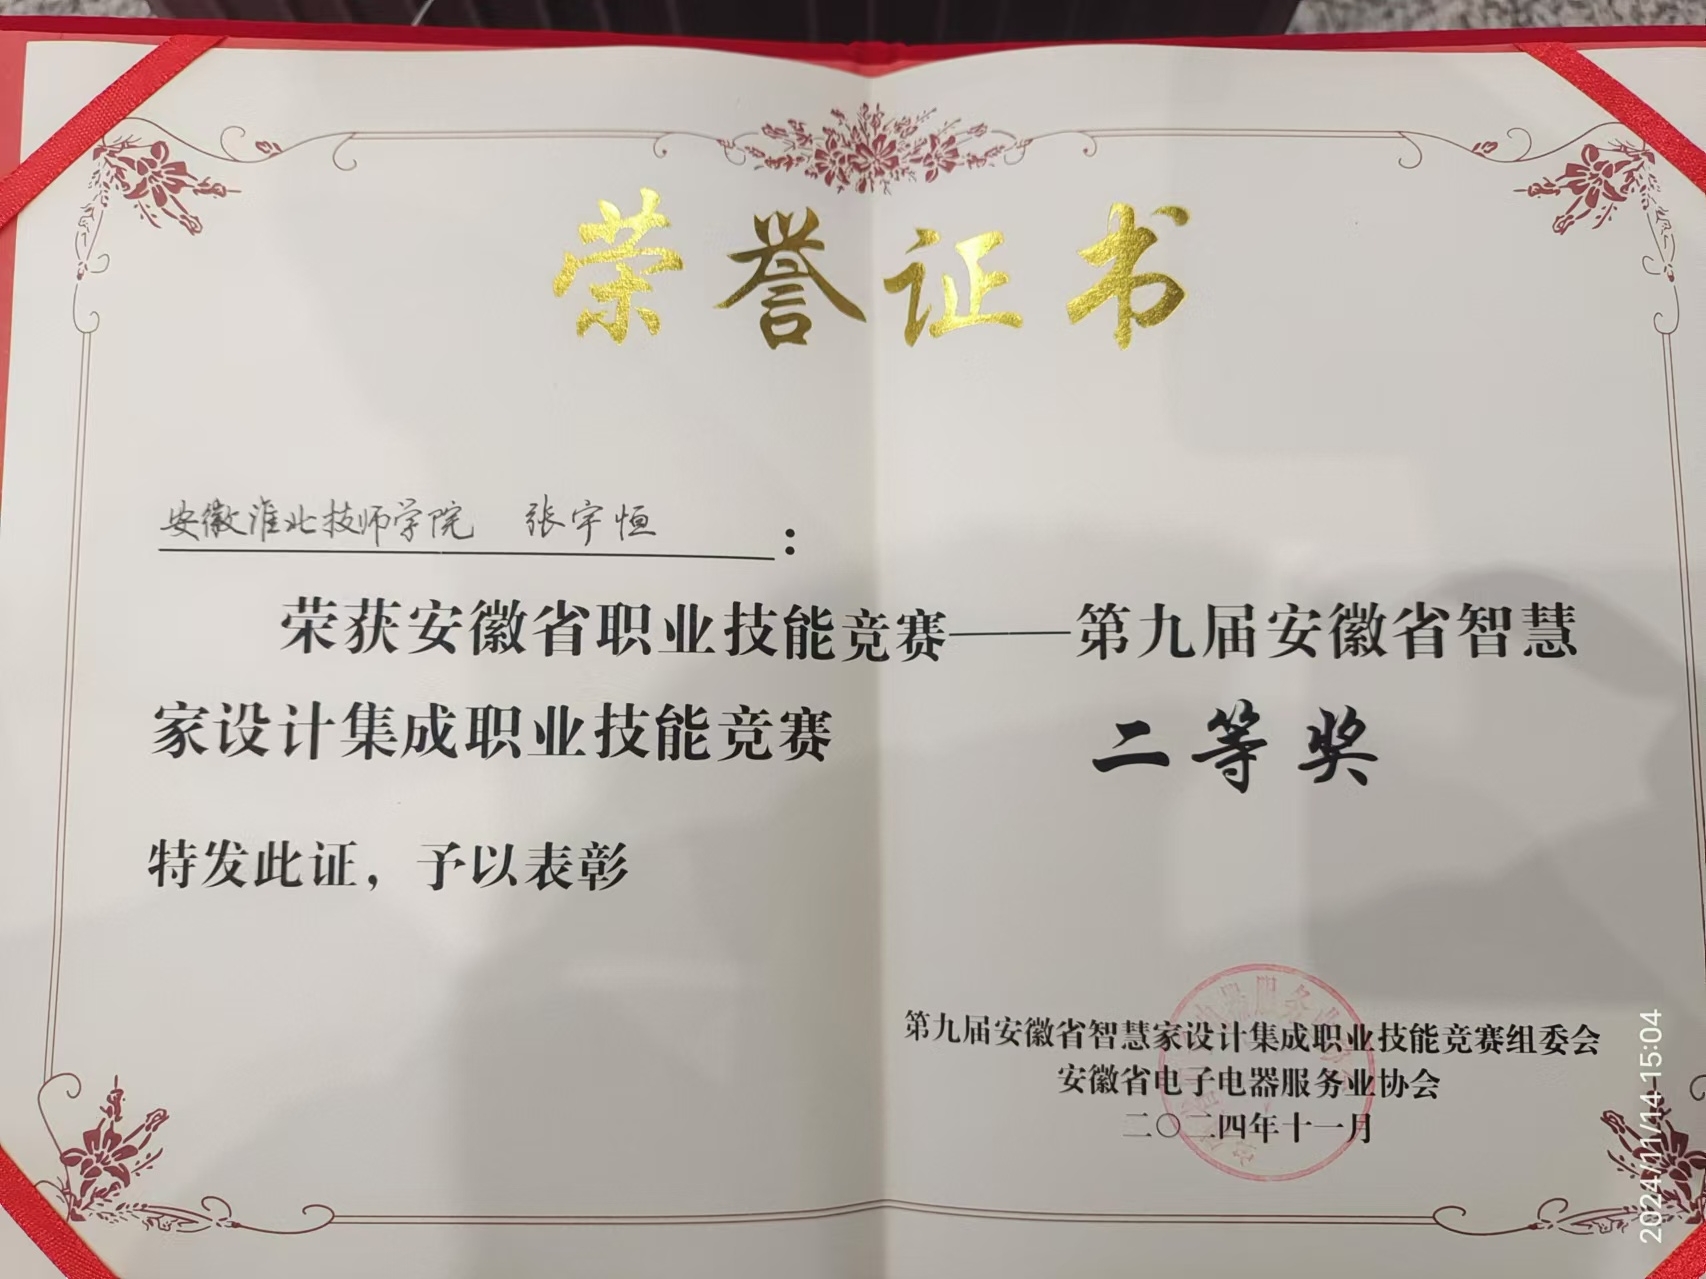 荣誉证书
安徽淮北技师学院 张宇恒：
荣获安徽省职业技能竞赛——第九届安徽省智慧
家设计集成职业技能竞赛 二等奖
特发此证，予以表彰
第九届安徽省智慧家设计集成职业技能竞赛组委会
安徽省电子电器服务业协会
二〇二四年十一月
2024/11/14 15:04